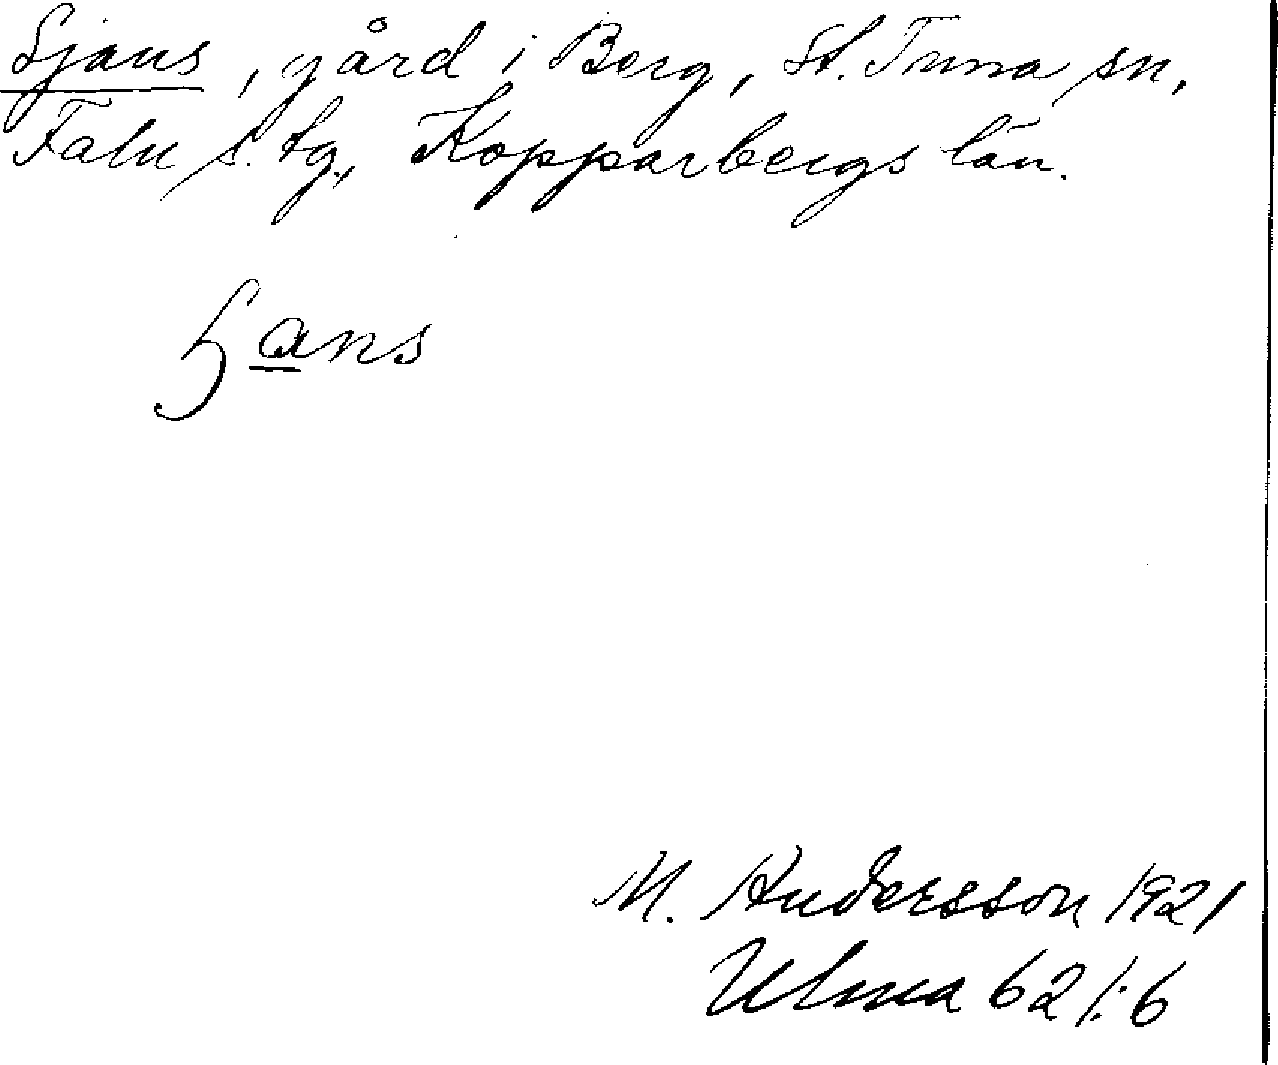 Sjans, gård i Berg, St. Tuna sn,
Falu s. tg., Kopparbergs län.
ɧans
M. Andersson 1921
Ulma 62 1:6